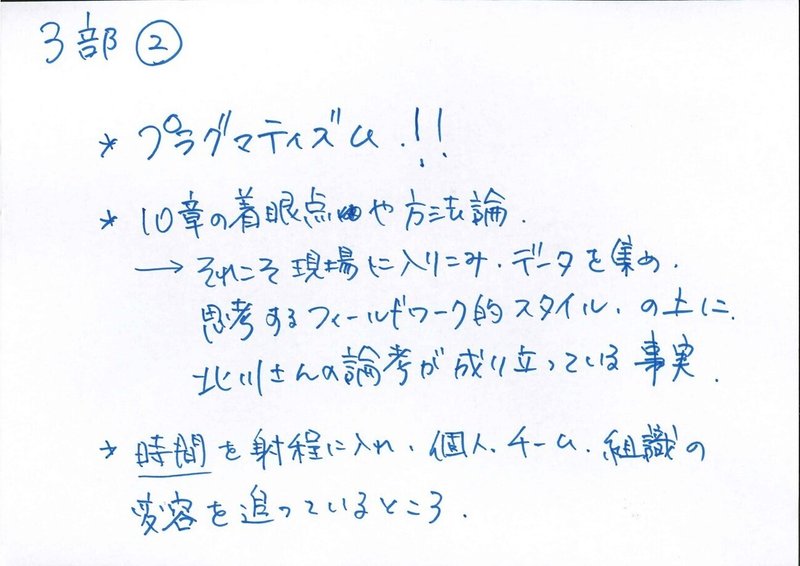 3部 ②
* プラグマティズム.!!
* 10章の着眼点や方法論.
→ それこそ現場に入りこみ、データを集め、
思考するフィールドワーク的スタイル、の上に、
北川さんの論考が成り立っている事実.
* 時間を射程に入れ、個人、チーム、組織の
変容を追っているところ.